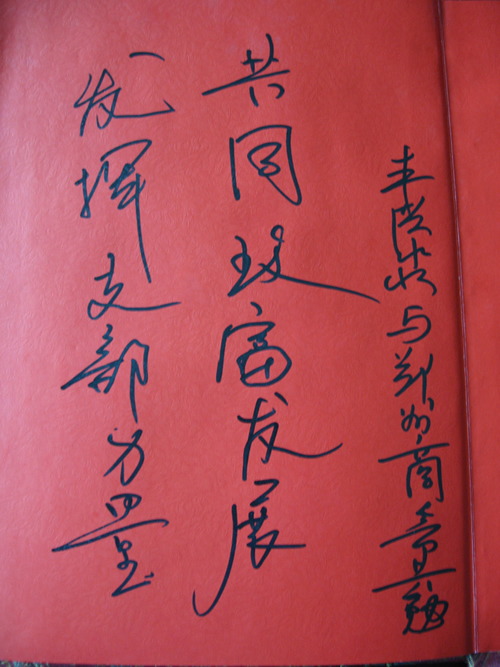 发挥支部力量
共同致富发展
与郑州商会共勉